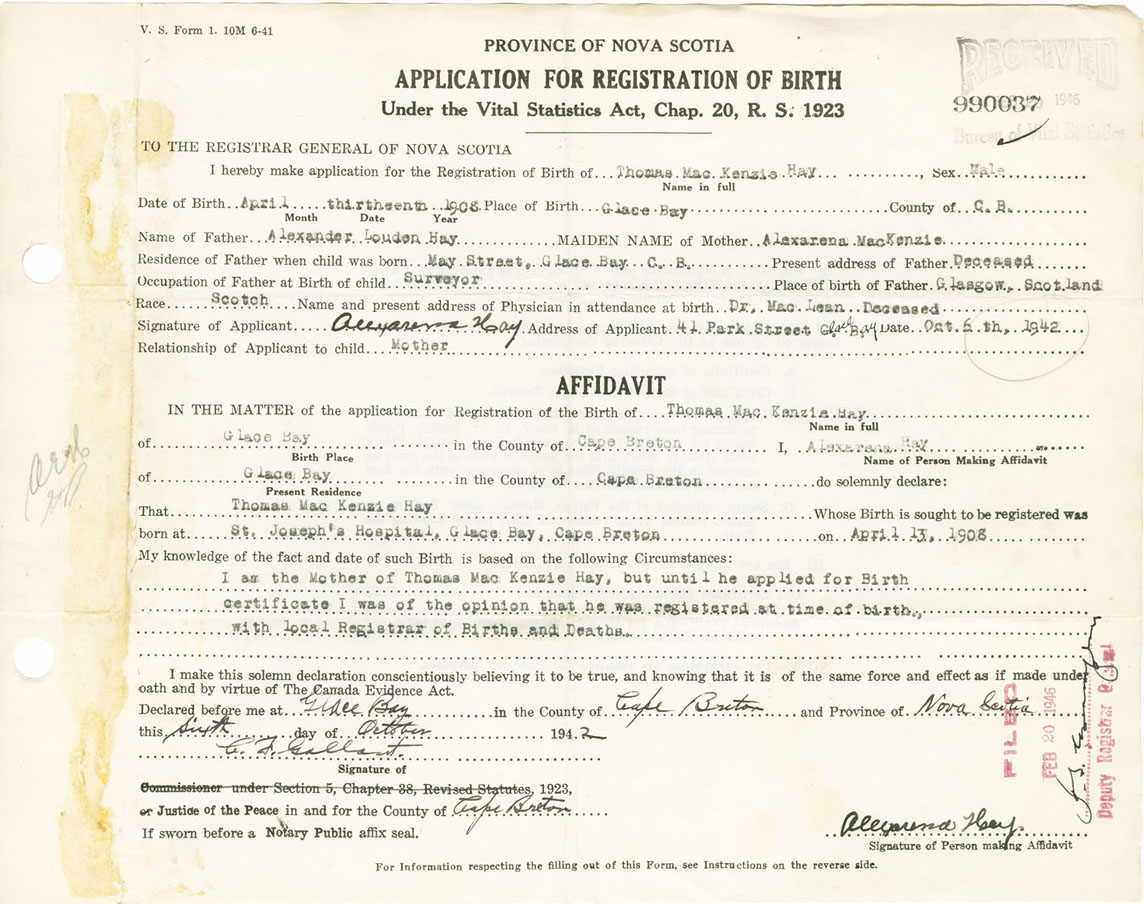 V. S. Form 1. 10M 6-41
PROVINCE OF NOVA SCOTIA
APPLICATION FOR REGISTRATION OF BIRTH
Under the Vital Statistics Act, Chap. 20, R. S. 1923
RECEIVED
990037
1946
Bureau of Vital Statistics
TO THE REGISTRAR GENERAL OF NOVA SCOTIA
I hereby make application for the Registration of Birth of...Thomas Mac Kenzie Hay..., Sex Male
Name in full
Date of Birth April thirteenth 1908 Place of Birth Glace Bay County of C.B.
Month Date Year
Name of Father Alexander Louden Hay MAIDEN NAME of Mother Alexarena MacKenzie
Residence of Father when child was born May Street, Glace Bay C. B. Present address of Father Deceased
Occupation of Father at Birth of child Surveyor Place of birth of Father Glasgow, Scotland
Race Scotch Name and present address of Physician in attendance at birth Dr. Mac Lean Deceased
Signature of Applicant Alexarena Hay Address of Applicant 41 Park Street Glace Bay Date Oct. 6 th, 1942
Relationship of Applicant to child Mother
AFFIDAVIT
IN THE MATTER of the application for Registration of the Birth of Thomas Mac Kenzie Hay
Name in full
of Glace Bay in the County of Cape Breton I, Alexarena Hay
Birth Place Name of Person Making Affidavit
of Glace Bay in the County of Cape Breton do solemnly declare:
Present Residence
That Thomas Mac Kenzie Hay Whose Birth is sought to be registered was
born at St. Joseph's Hospital, Glace Bay, Cape Breton on April 13, 1908
My knowledge of the fact and date of such Birth is based on the following Circumstances:
I am the Mother of Thomas Mac Kenzie Hay, but until he applied for Birth
certificate I was of the opinion that he was registered at time of birth,
with local Registrar of Births and Deaths.
I make this solemn declaration conscientiously believing it to be true, and knowing that it is of the same force and effect as if made under
oath and by virtue of The Canada Evidence Act.
Declared before me at Glace Bay in the County of Cape Breton and Province of Nova Scotia
this Sixth day of October 1942
C. F. Gallant
Signature of
Commissioner under Section 5, Chapter 38, Revised Statutes, 1923,
or Justice of the Peace in and for the County of Cape Breton
If sworn before a Notary Public affix seal.
FILED
FEB 20 1946
Deputy Registrar
Alexarena Hay
Signature of Person making Affidavit
For Information respecting the filling out of this Form, see Instructions on the reverse side.